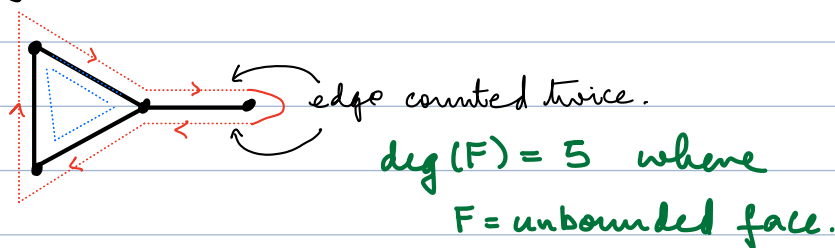 edge counted twice.
deg(F) = 5 where
F = unbounded face.